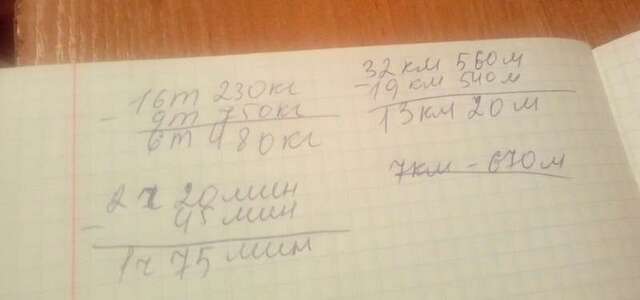 - 16т 230кг
9т 750кг
6т 480кг
2ч 20мин
- 45мин
1ч 75мин
32км 560м
- 19км 540м
13км 20м
7км - 670м